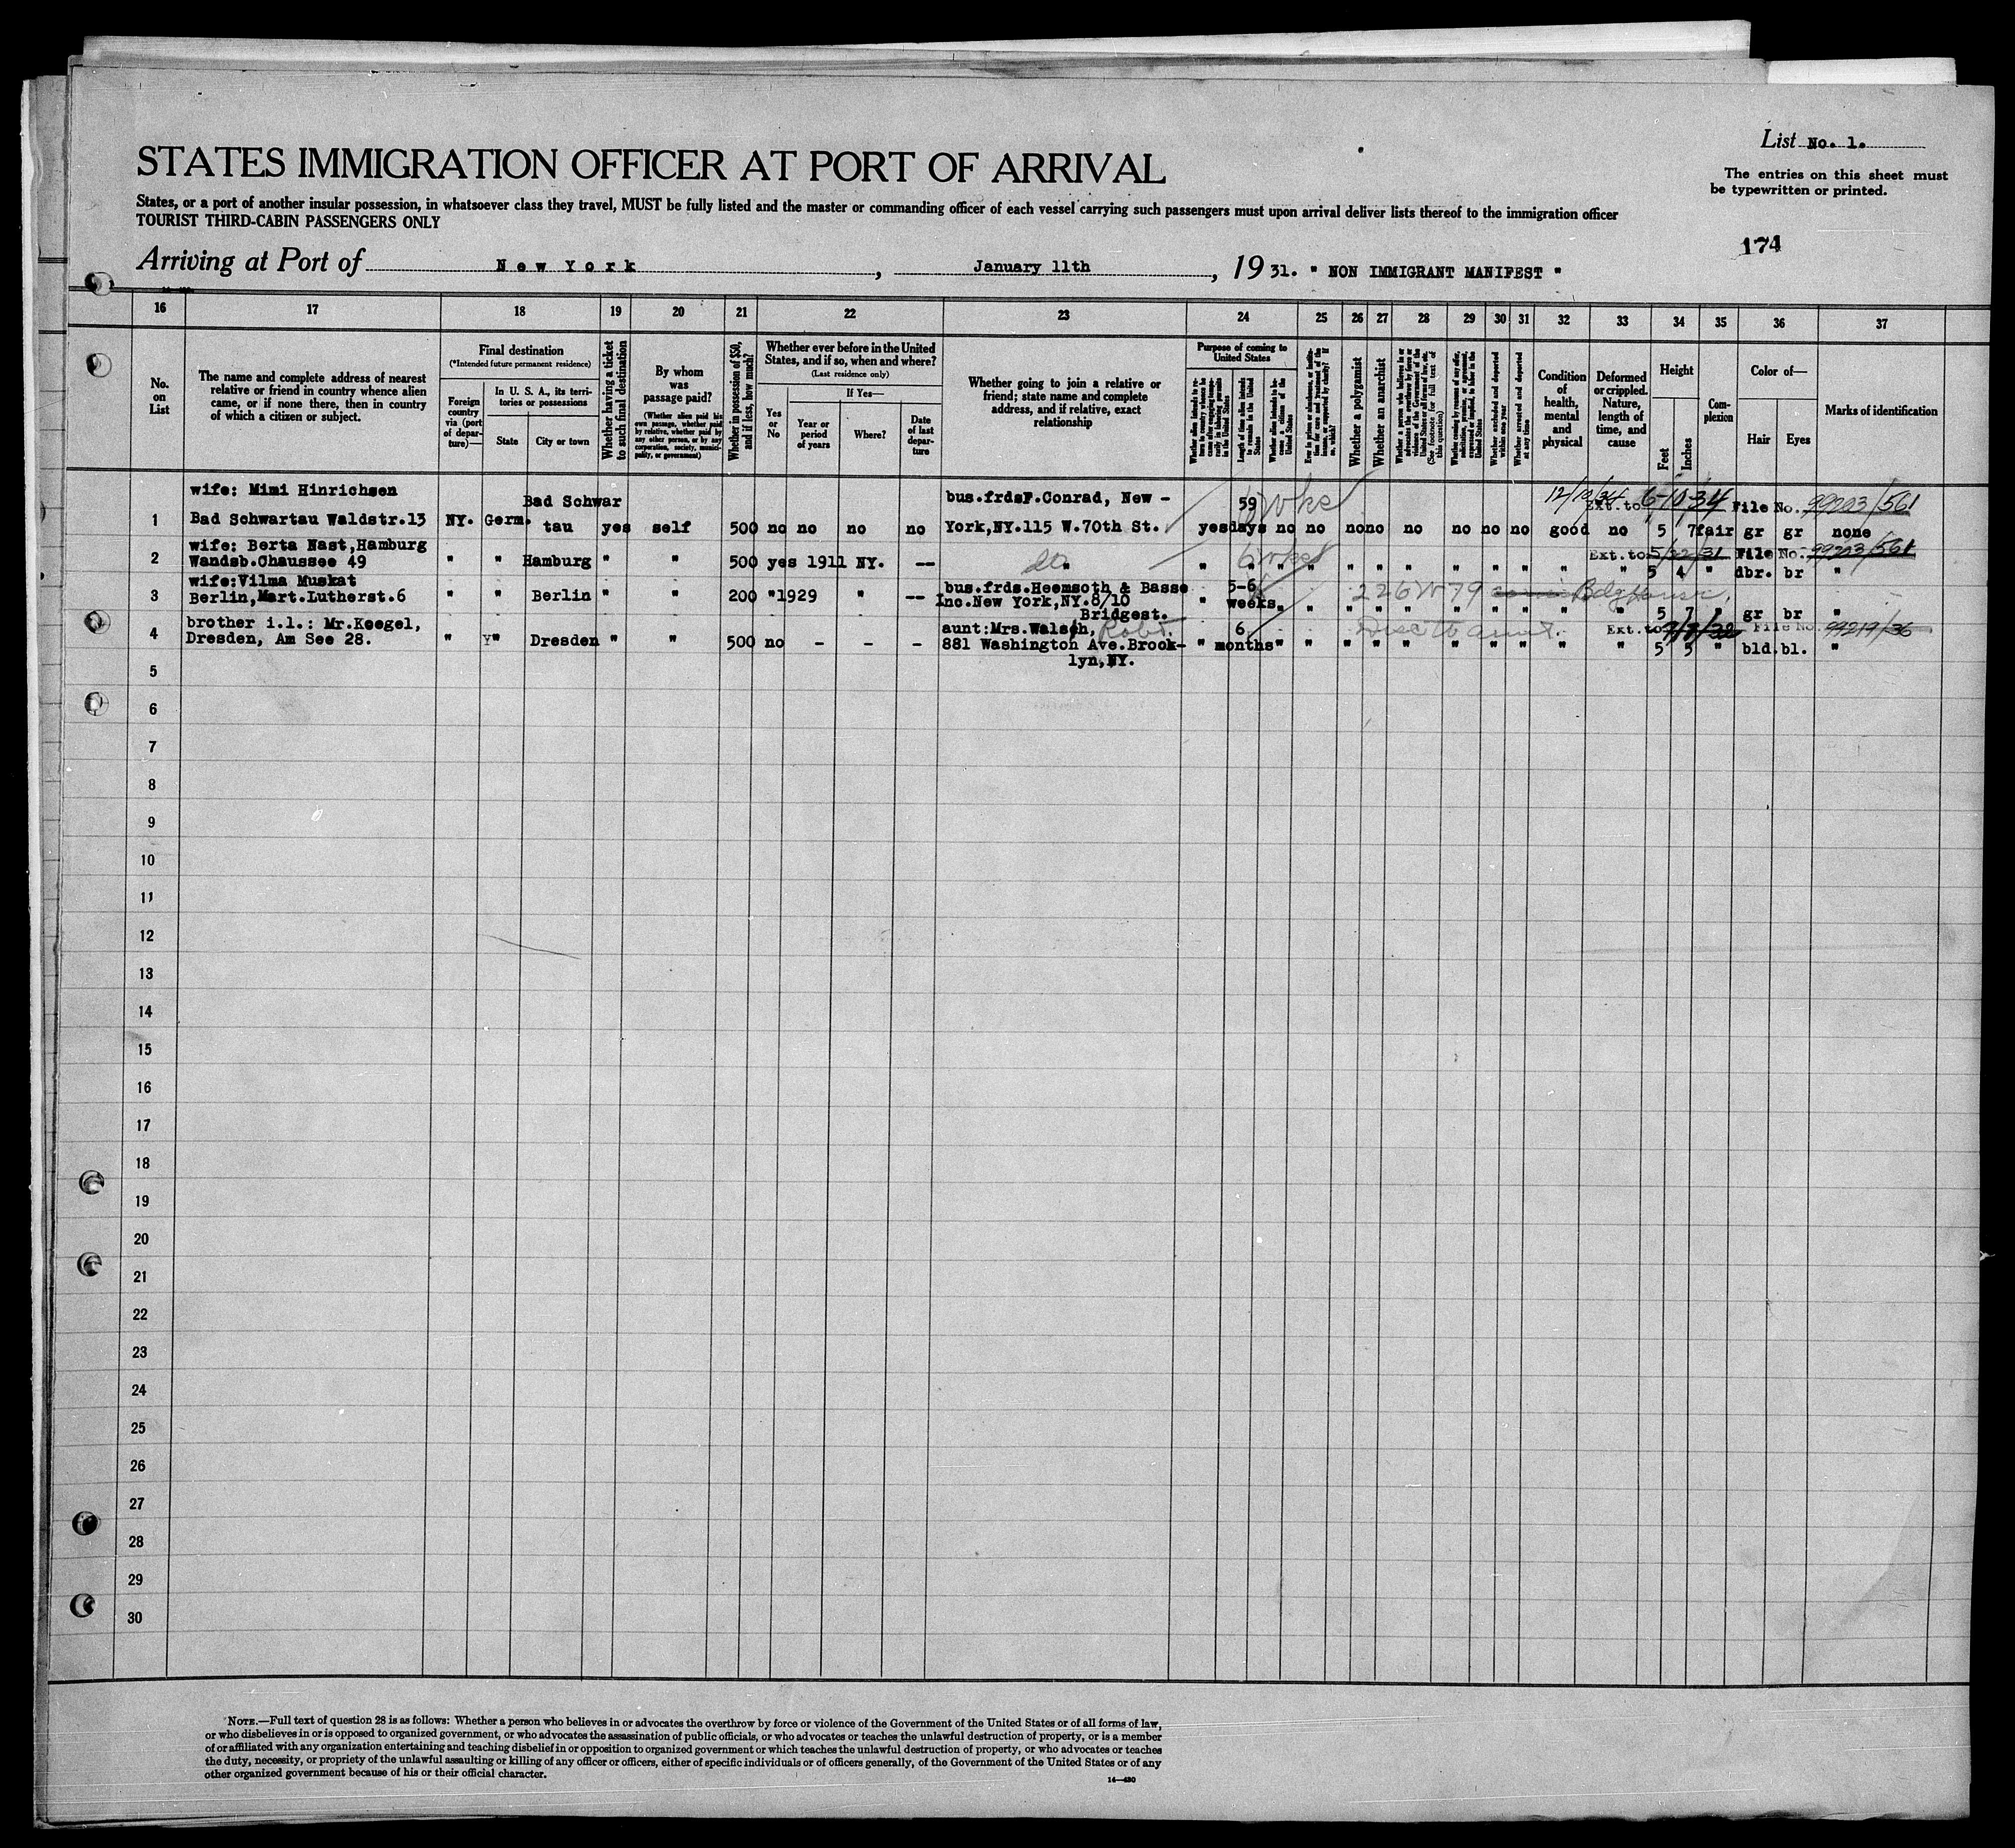 List No. 1.
STATES IMMIGRATION OFFICER AT PORT OF ARRIVAL
The entries on this sheet must
be typewritten or printed.
States, or a port of another insular possession, in whatsoever class they travel, MUST be fully listed and the master or commanding officer of each vessel carrying such passengers must upon arrival deliver lists thereof to the immigration officer
TOURIST THIRD-CABIN PASSENGERS ONLY
174
Arriving at Port of New York, January 11th, 1931. " NON IMMIGRANT MANIFEST "
16 17 18 19 20 21 22 23 24 25 26 27 28 29 30 31 32 33 34 35 36 37
No. on List
The name and complete address of nearest
relative or friend in country whence alien
came, or if none there, then in country
of which a citizen or subject.
Final destination
(*Intended future permanent residence)
Foreign country via (port of departure)—
In U. S. A., its territories or possessions
State
City or town
Whether having a ticket to such final destination
By whom was passage paid?
(Whether alien paid his own passage, whether paid by relative, whether paid by any other person, or by any corporation, society, municipality, or government)
Whether in possession of $50, and if less, how much?
Whether ever before in the United
States, and if so, when and where?
(Last residence only)
Yes or No
If Yes—
Year or period of years
Where?
Date of last departure
Whether going to join a relative or
friend; state name and complete
address, and if relative, exact
relationship
Purpose of coming to United States
Length of time alien intends to remain in the United States
Whether alien intends to become a citizen of the United States
Whether a polygamist
Whether an anarchist
(See footnote for full text of this question)
Whether excluded and deported within one year
Whether arrested and deported at any time
Condition of health, mental and physical
Deformed or crippled. Nature, length of time, and cause
Height
Feet
Inches
Complexion
Color of—
Hair
Eyes
Marks of identification
wife: Mimi Hinrichsen Bad Schwar bus.frdsF.Conrad, New - 59 6 wks 12/10/34 Ext.to 6-10-34 File No. 99203/561
1 Bad Schwartau Waldstr.13 NY. Germ. tau yes self 500 no no no no York,NY.115 W.70th St. yes days no no no no no no no no good no 5 7 fair gr gr none
wife: Berta Nast,Hamburg Ext.to 5/22/31 File No. 99203/561
2 Wandsb.Chaussee 49 " " Hamburg " " 500 yes 1911 NY. -- " 6 wks " " " " " " " " " " " " 5 4 " dbr. br "
wife:Vilma Muskat bus.frds.Heemsoth & Basse 5-6
3 Berlin,Mart.Lutherst.6 " " Berlin " " 200 " 1929 " -- Inc.New York,NY.8/10 " weeks " " " " " " " " " " " 226 W 79
Bridgest. 5 7 " gr br "
brother i.l.: Mr.Keegel, aunt:Mrs.Walsch, Robt. 6 Ext.to 9/7/32 File No. 99219/36
4 Dresden, Am See 28. " Y" Dresden " " 500 no - - - 881 Washington Ave.Brook- " months " " " " " " " " " " " 5 5 " bld. bl. "
lyn,NY.
5
6
7
8
9
10
11
12
13
14
15
16
17
18
19
20
21
22
23
24
25
26
27
28
29
30
NOTE.—Full text of question 28 is as follows: Whether a person who believes in or advocates the overthrow by force or violence of the Government of the United States or of all forms of law,
or who disbelieves in or is opposed to organized government, or who advocates the assassination of public officials, or who advocates or teaches the unlawful destruction of property, or is a member
of or affiliated with any organization entertaining and teaching disbelief in or opposition to organized government or which teaches the unlawful destruction of property, or who advocates or teaches
the duty, necessity, or propriety of the unlawful assaulting or killing of any officer or officers, either of specific individuals or of officers generally, of the Government of the United States or of any
other organized government because of his or their official character.
14—430